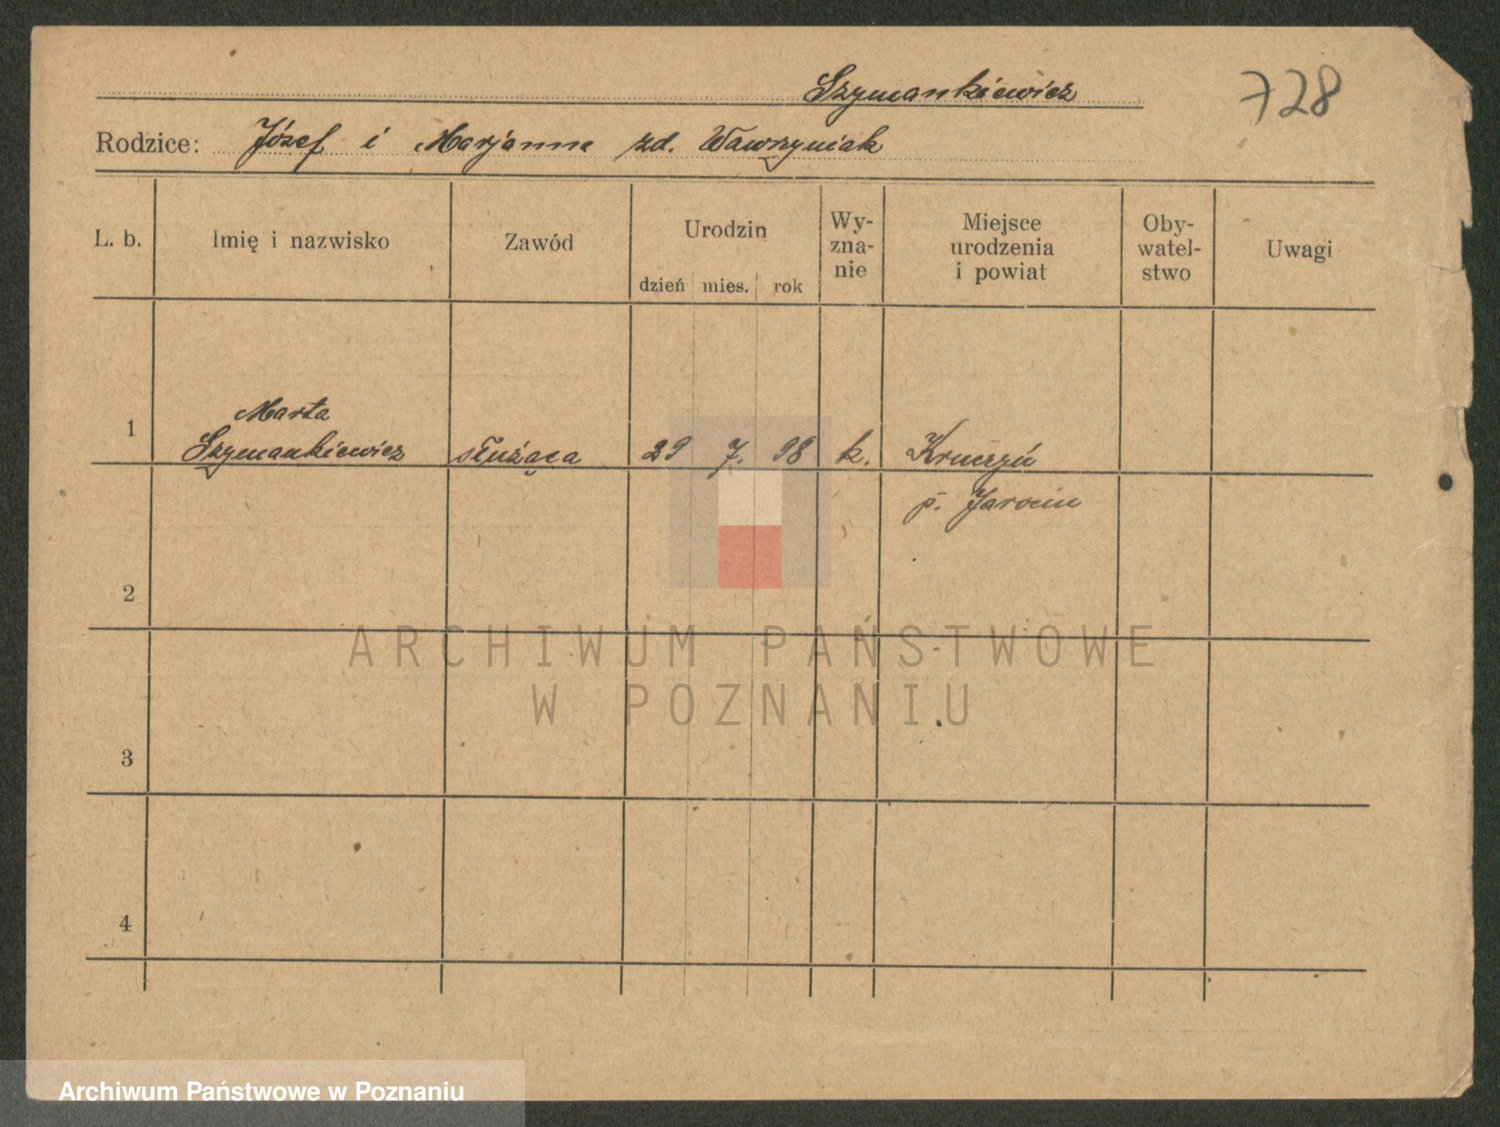 Szymankiewicz
728
Rodzice: Józef i Marjanna zd. Wawrzyniak
L. b.
Imię i nazwisko
Zawód
Urodzin
dzień mies. rok
Wy-
zna-
nie
Miejsce
urodzenia
i powiat
Oby-
watel-
stwo
Uwagi
1
Marta
Szymankiewicz
służąca
29 7. 98
k.
Kruczyń
p. Jarocin
2
3
4
ARCHIWUM PAŃSTWOWE
W POZNANIU
Archiwum Państwowe w Poznaniu